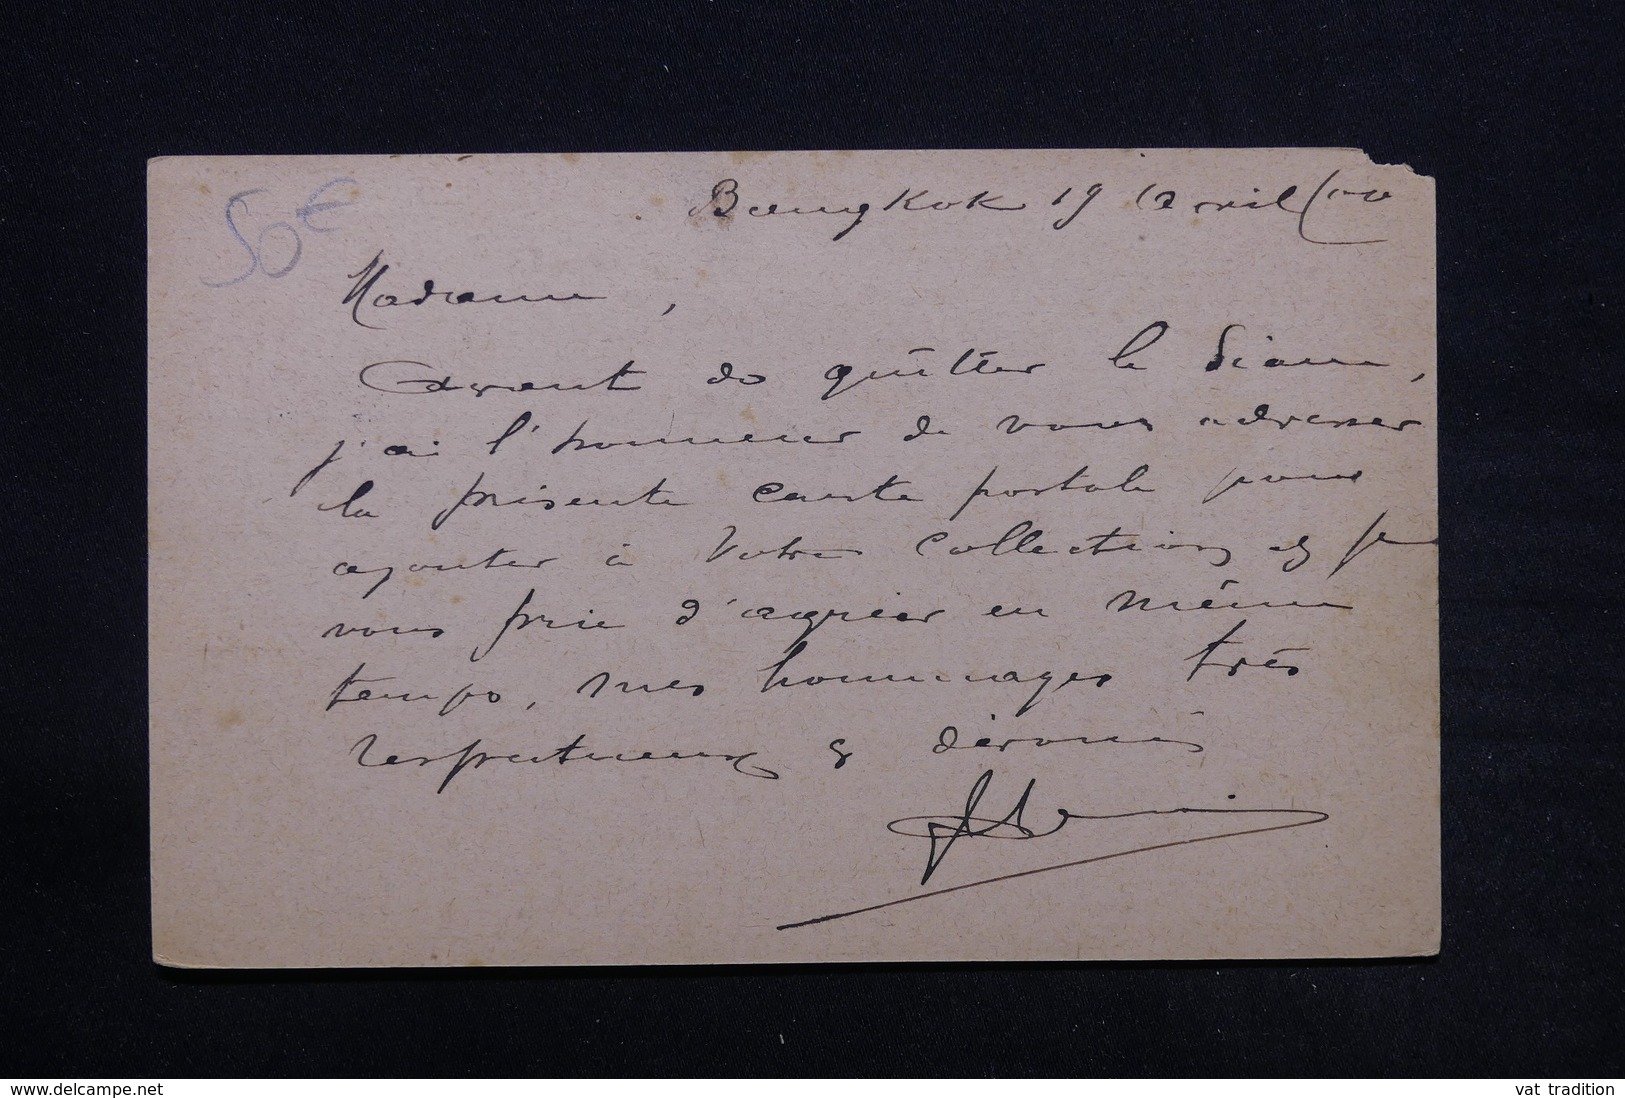 50€
Bangkok 19 Avril
Madame,
Avant de quitter le Siam,
j'ai l'honneur de vous adresser
la présente carte postale pour
ajouter à votre collection et je
vous prie d'agréer en même
temps, mes hommages très
respectueux & dévoués
www.delcampe.net
vat tradition